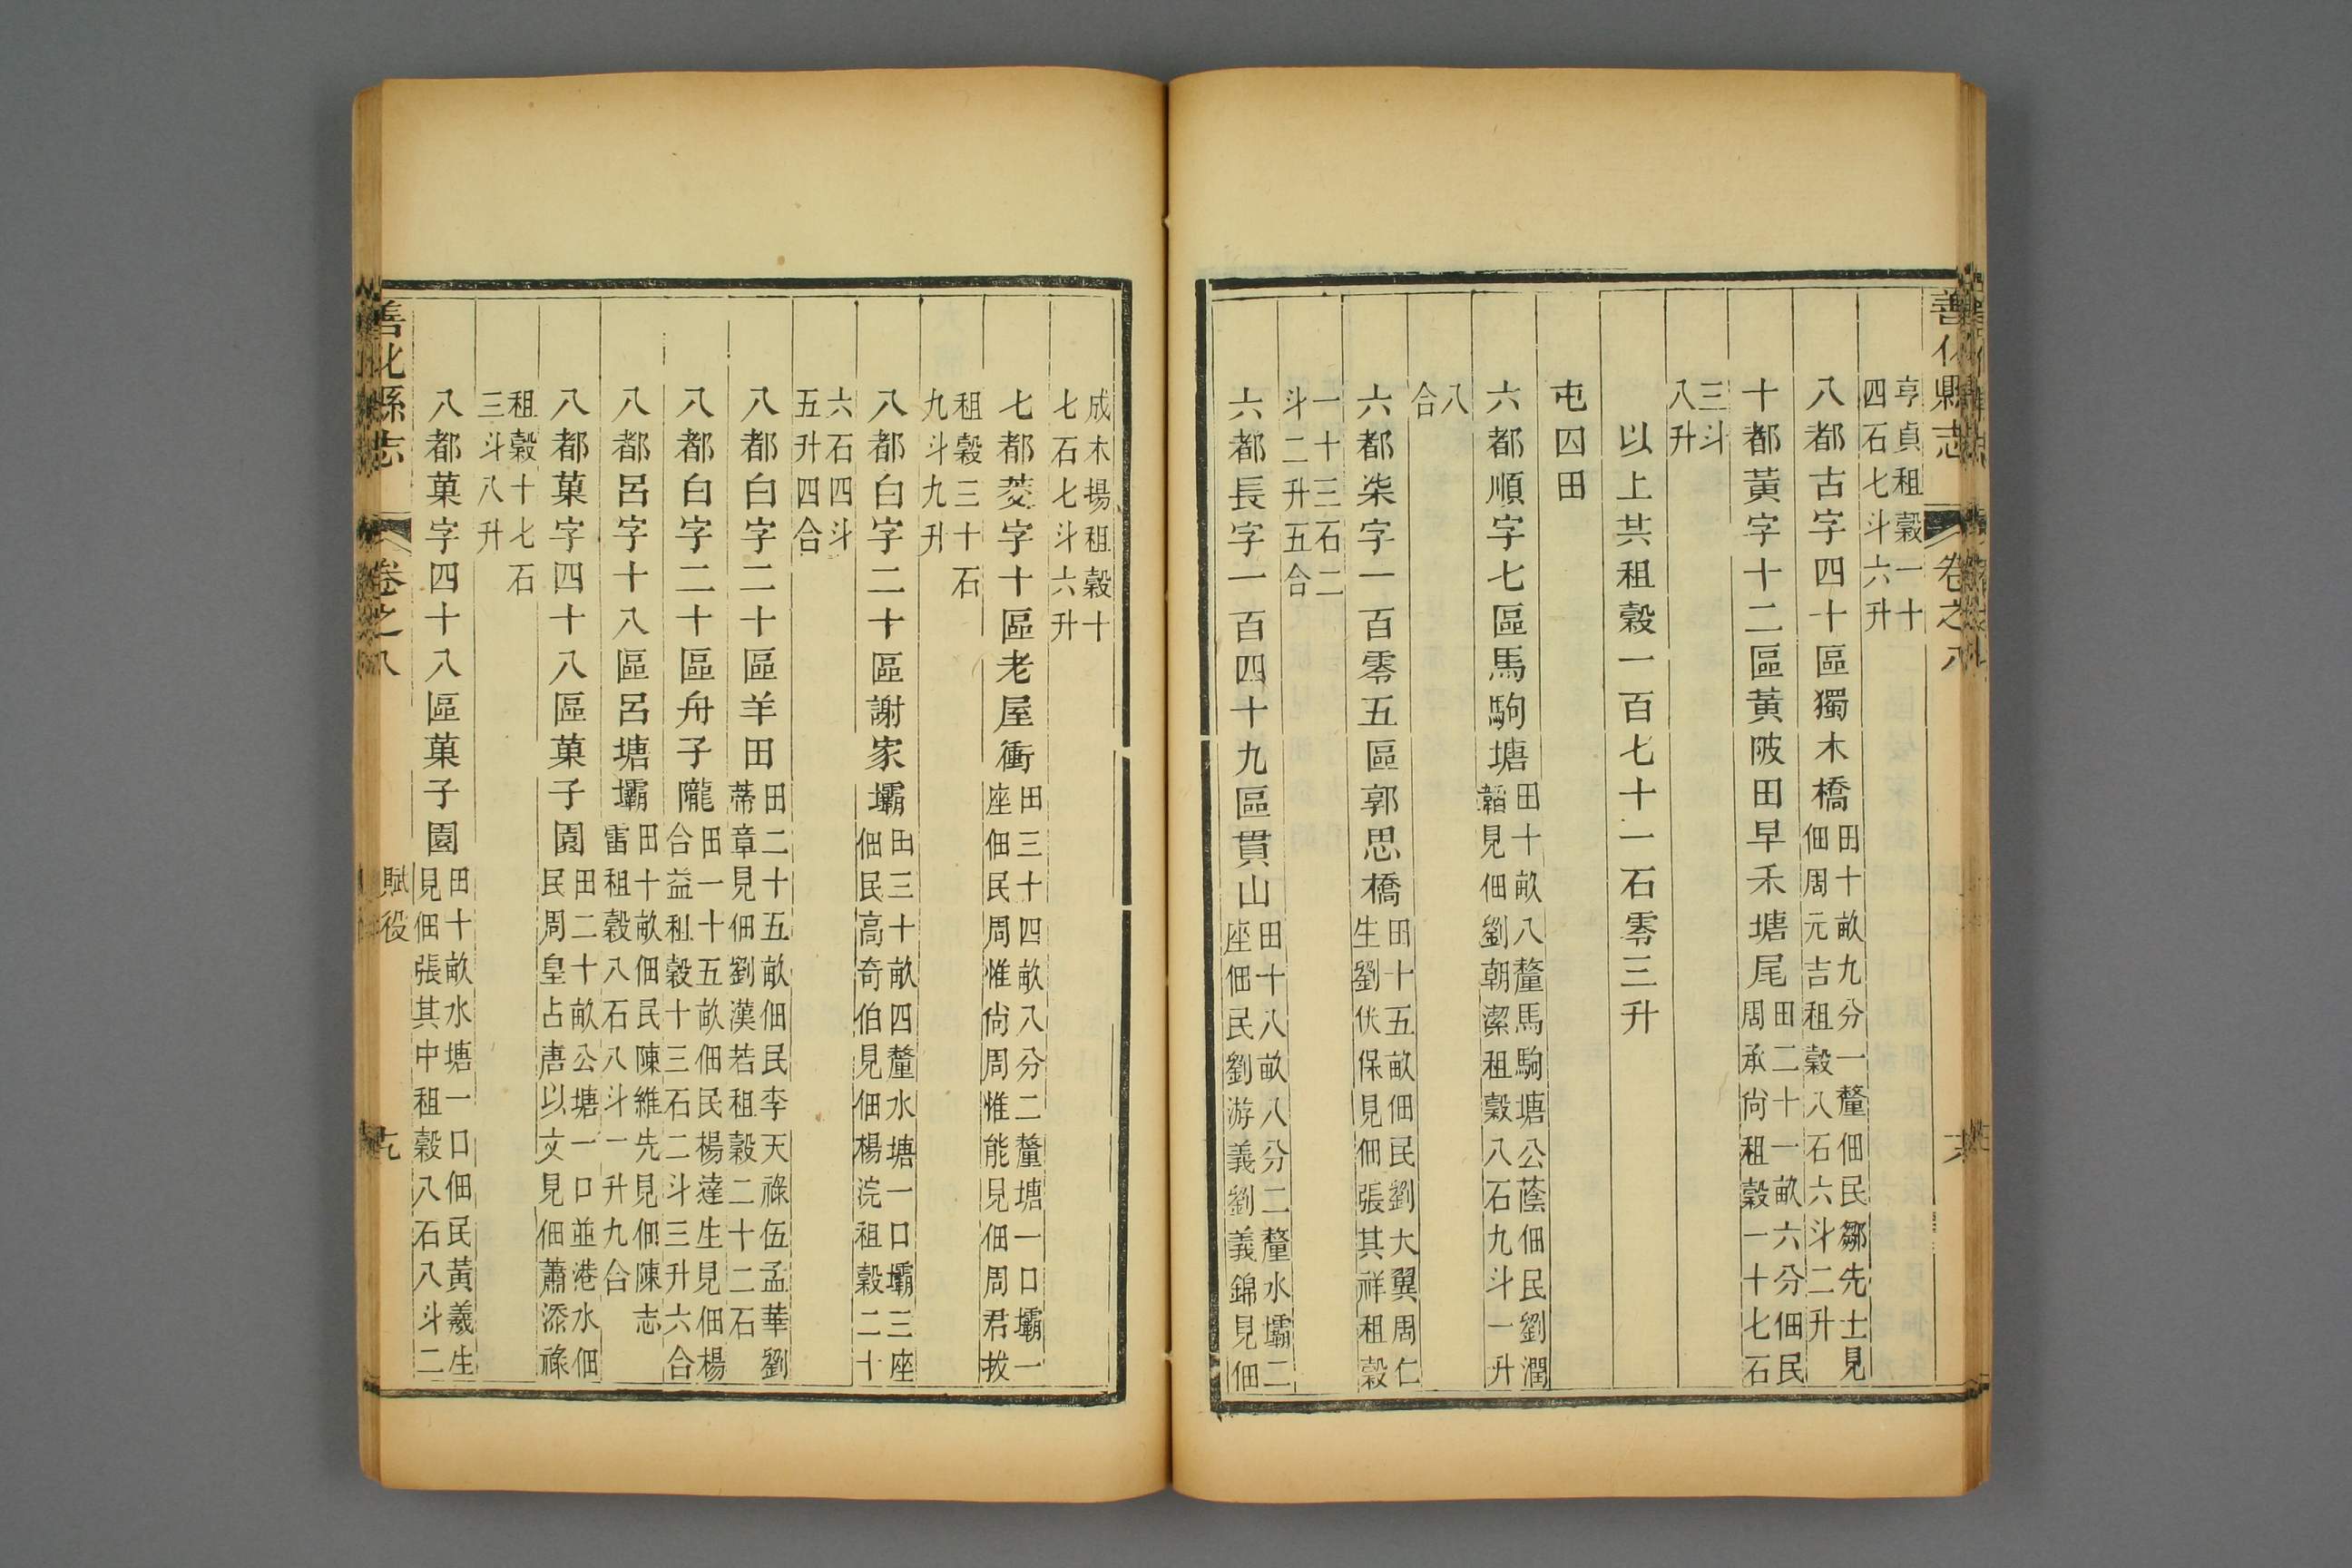 善化縣志 卷之八 六
亨貞租穀一十
四石七斗六升
八都古字四十區獨木橋 田十畝九分一釐佃民鄒先士見
佃周元吉租穀八石六斗二升
十都黃字十二區黃陂田早禾塘尾 田二十一畝六分佃民
周承尙租穀一十七石
三斗
八升
以上共租穀一百七十一石零三升
屯囚田
六都順字七區馬駒塘 田十畝八釐馬駒塘公蔭佃民劉潤
韜見佃劉朝潔租穀八石九斗一升
八
合
六都柒字一百零五區郭思橋 田十五畝佃民劉大翼周仁
生劉伏保見佃張其祥租穀
一十三石二
斗二升五合
六都長字一百四十九區貫山 田十八畝八分二釐水壩二
座佃民劉游義劉義錦見佃
成木場租穀十
七石七斗六升
七都菱字十區老屋衝 田三十四畝八分二釐塘一口壩一
座佃民周惟尙周惟能見佃周君拔
租穀三十石
九斗九升
八都白字二十區謝家壩 田三十畝四釐水塘一口壩三座
佃民高奇伯見佃楊浣租穀二十
六石四斗
五升四合
八都白字二十區羊田 田二十五畝佃民李天祿伍孟華劉
蒂章見佃劉漢若租穀二十二石
八都白字二十區舟子隴 田一十五畝佃民楊達生見佃楊
合益租穀十三石二斗三升六合
八都呂字十八區呂塘壩 田十畝佃民陳維先見佃陳志
雷租穀八石八斗一升九合
八都菓字四十八區菓子園 田二十畝公塘一口並港水佃
民周皇占唐以文見佃蕭添祿
租穀十七石
三斗八升
八都菓字四十八區菓子園 田十畝水塘一口佃民黃羲生
見佃張其中租穀八石八斗二
善化縣志 卷之八 賦役